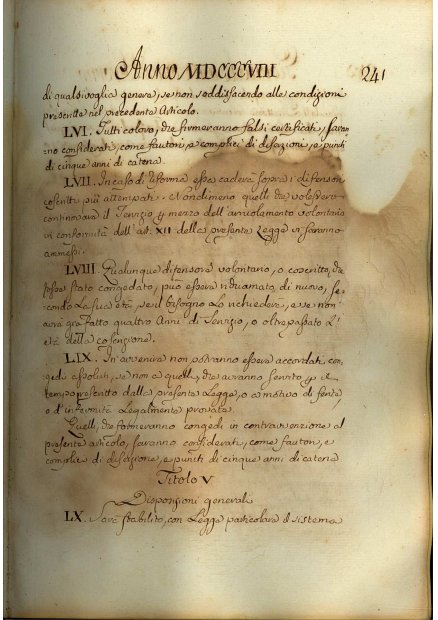 Anno MDCCCVIII 241
di qualsivoglia genere, se non soddisfacendo alle condizioni
prescritte nel precedente Articolo.
LVI. Tutti coloro, che firmeranno falsi certificati, saran
no considerati, come fautori, e complici di diserzione, e puniti
di cinque anni di catena.
LVII. In caso di riforma essa caderà sopra i difensori
coscritti più attempati. Nondimeno quelli che volessero
continovare il servizio p mezzo dell'arrolamento volontario
in conformità dell'art. XII della presente Legge vi saranno
ammessi.
LVIII. Qualunque difensore volontario, o coscritto, che
fosse stato congedato, può essere richiamato di nuovo, se
condo la sua età, se il bisogno lo richiedere, e se non
avrà già fatto quattro Anni di servizio, o oltrepassato l'
età della coscrizione.
LIX. In avvenire non potranno essere accordati con
gedi assoluti, se non a quelli, che avranno servito p il
tempo prescritto dalla presente Legge, o a motivo di ferite,
o d'infermità legalmente provata.
Quelli, che formeranno congedi in contravenzione al
presente articolo, saranno considerati, come fautori, e
complici di diserzione, e puniti di cinque anni di catena
Titolo V
Disposizioni generali
LX. Sarà stabilito, con Legge particolare il sistema